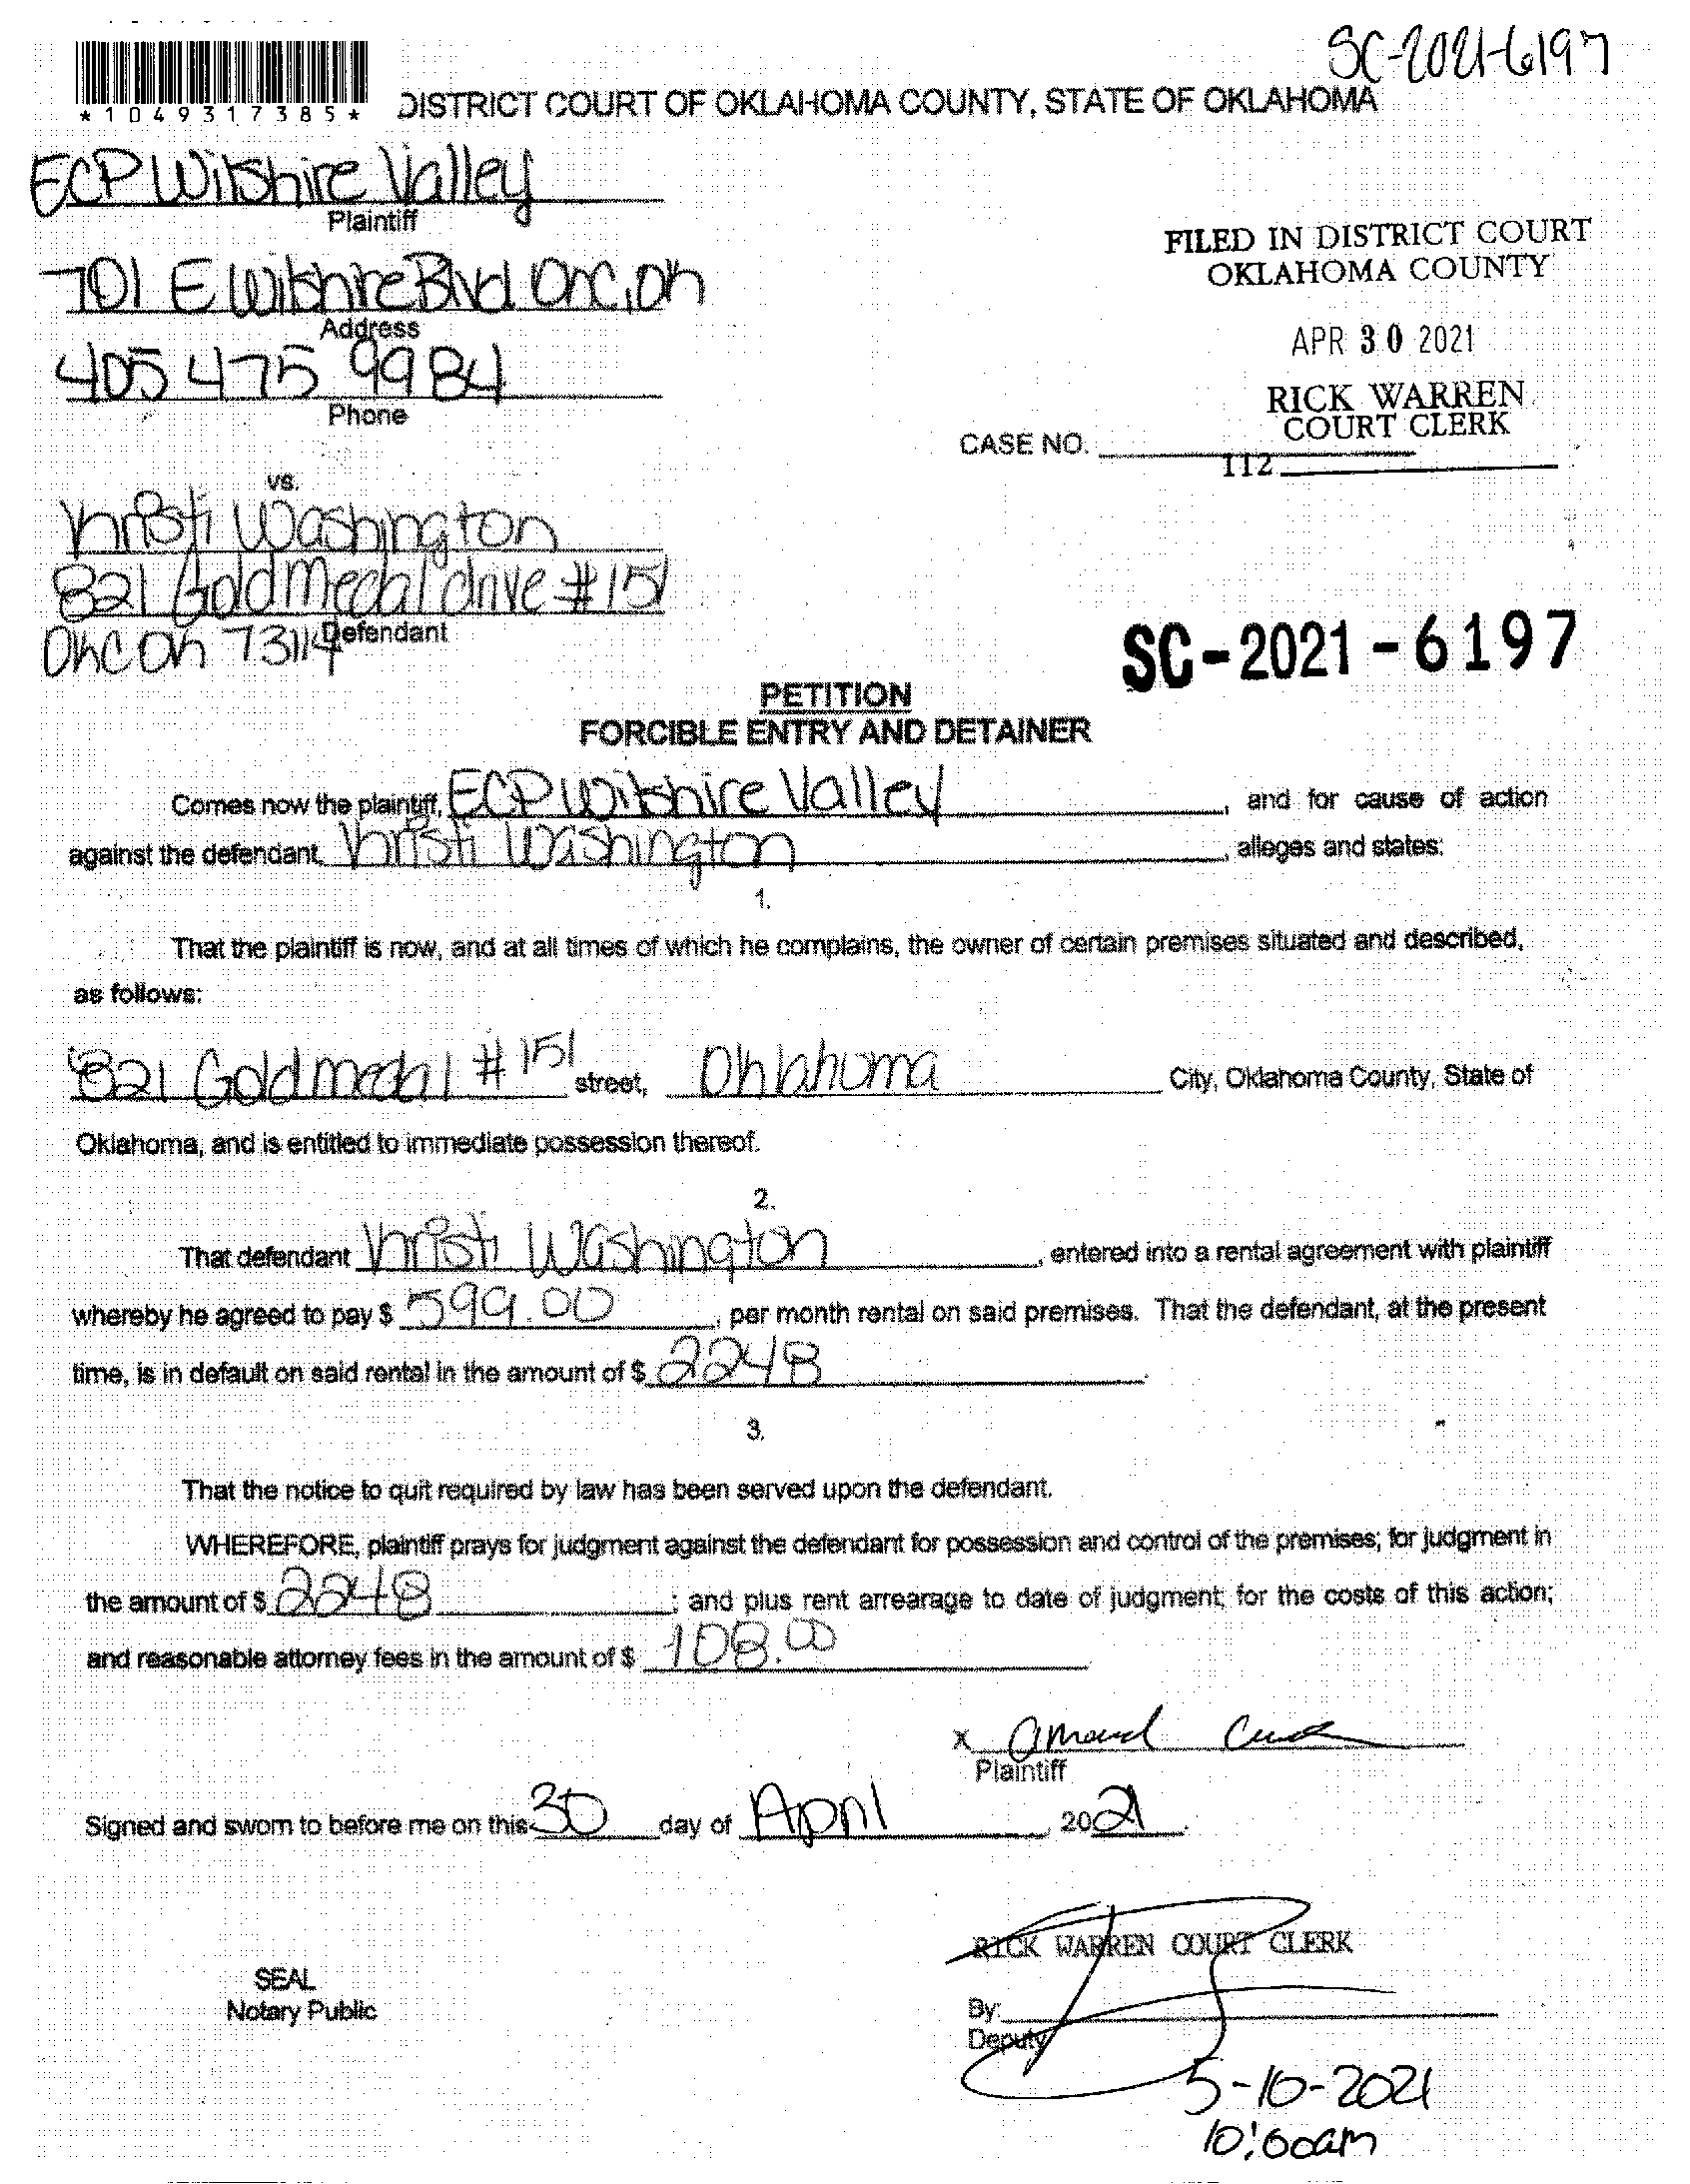 SC-2021-6197
*1049317385*
DISTRICT COURT OF OKLAHOMA COUNTY, STATE OF OKLAHOMA
ECP Wilshire Valley
Plaintiff
FILED IN DISTRICT COURT
OKLAHOMA COUNTY
701 E Wilshire Blvd OKC, OK
Address
APR 30 2021
405 475 9984
Phone
RICK WARREN
COURT CLERK
CASE NO.
112
vs.
Kristi Washington
821 Gold Medal drive #151
OKC OK 73114
Defendant
SC-2021-6197
PETITION
FORCIBLE ENTRY AND DETAINER
Comes now the plaintiff, ECP Wilshire Valley, and for cause of action
against the defendant, Kristi Washington, alleges and states:
1.
That the plaintiff is now, and at all times of which he complains, the owner of certain premises situated and described,
as follows:
821 Gold medal #151 street, Oklahoma City, Oklahoma County, State of
Oklahoma, and is entitled to immediate possession thereof.
2.
That defendant Kristi Washington, entered into a rental agreement with plaintiff
whereby he agreed to pay $ 599.00, per month rental on said premises. That the defendant, at the present
time, is in default on said rental in the amount of $ 2248.
3.
That the notice to quit required by law has been served upon the defendant.
WHEREFORE, plaintiff prays for judgment against the defendant for possession and control of the premises; for judgment in
the amount of $ 2248; and plus rent arrearage to date of judgment; for the costs of this action;
and reasonable attorney fees in the amount of $ 108.00
x
Plaintiff
Signed and sworn to before me on this 30 day of April, 2021.
RICK WARREN COURT CLERK
SEAL
Notary Public
By:
Deputy
5-10-2021
10:00am